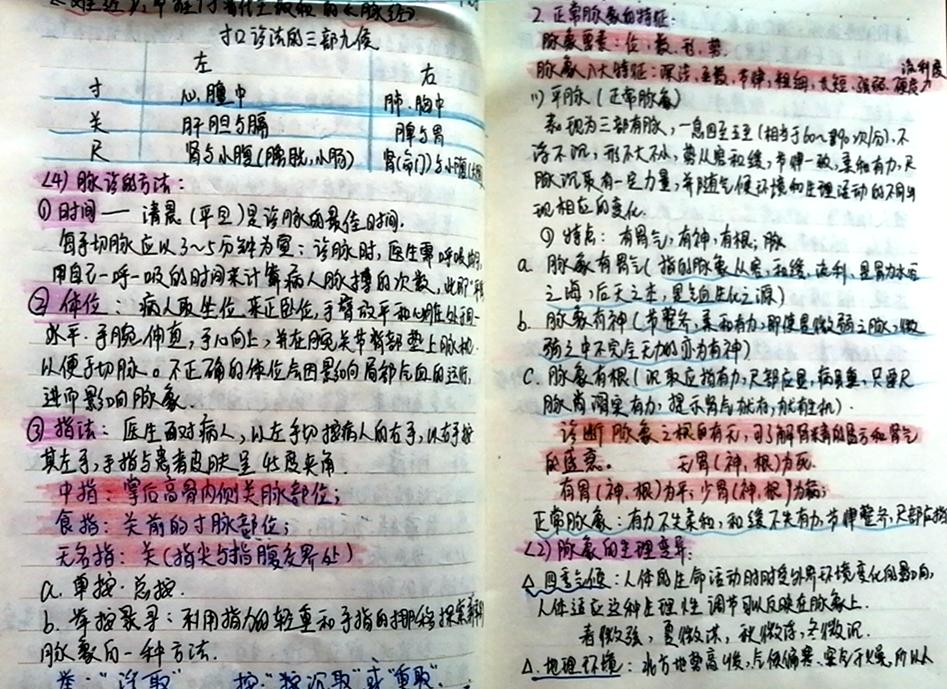 寸口诊法的三部九候
左 右
寸 心、膻中 肺、胸中
关 肝胆与膈 脾与胃
尺 肾与小腹(膀胱、小肠) 肾(命门)与小腹
<4) 脉诊的方法:
① 时间—— 清晨 (平旦) 是诊脉的最佳时间.
每手切脉应以3~5分钟为宜; 诊脉时, 医生需呼吸
用自己一呼一吸的时间来计算病人脉搏的次数, 此即
② 体位: 病人取坐位或正卧位, 手臂放平和心脏处于同一
水平. 手腕伸直, 手心向上, 并在腕关节背部垫上脉枕.
以便于切脉。不正确的体位会因影响局部气血的运行,
进而影响脉象.
③ 指法: 医生面对病人, 以左手切按病人的右手, 以右手按
其左手, 手指与患者皮肤呈45度夹角.
中指: 掌后高骨内侧关脉部位;
食指: 关前的寸脉部位;
无名指: 关(指尖与指腹交界处)
a. 单按. 总按
b. 举按寻: 利用指力的轻重和手指的挪移探索
脉象的一种方法.
举: "浮取" 按: "沉取"或"重取".
2. 正常脉象的特征:
脉象要素: 位, 数, 形, 势.
脉象八大特征: 深浅, 至数, 节律, 粗细, 长短, 强弱, 硬度, 流利度
(1) 平脉 (正常脉象)
表现为三部有脉, 一息四至五至 (相当于60~ 次/分), 不
浮不沉, 形不大不小, 势从容和缓, 节律一致, 柔和有力, 尺
脉沉取有一定力量, 并随气候环境和生理活动的不同出
现相应的变化.
① 特点: 有胃气, 有神, 有根; 脉
a. 脉象有胃气( 指的脉象从容, 和缓, 流利, 是胃为水谷
之海, 后天之本, 是气血生化之源)
b. 脉象有神 (节律整齐, 柔和有力, 即使是微弱之脉, 微
弱之中不完全无力的亦为有神)
C. 脉象有根 ( 沉取应指有力, 尺部应显, 病虽重, 只要尺
脉尚滑实有力, 提示肾气犹存, 犹有生机).
诊断脉象之根的有无, 可了解肾精的盈亏和肾气
的盛衰. 无胃(神, 根)为死.
有胃(神, 根)为平; 少胃(神, 根)为病;
正常脉象: 有力不失柔和, 和缓不失有力, 节律整齐, 尺部应指
<2) 脉象的生理变异:
△ 四季气候: 人体的生命活动时时受外界环境变化的影响,
人体适应这种生理性调节可以反映在脉象上.
春微弦, 夏微洪, 秋微浮, 冬微沉.
△. 地理环境: 北方地势高峻, 气候偏寒, 空气干燥, 所以人